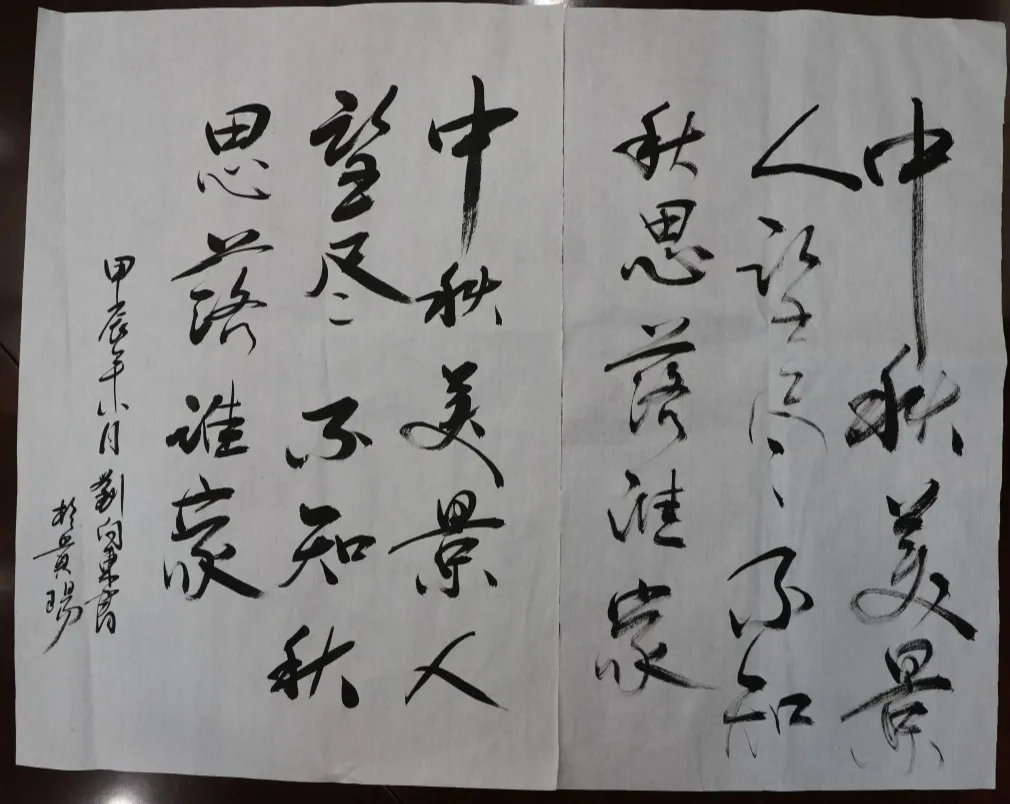 中秋美景
人望尽不知
秋思落谁家
中秋美景人
望尽不知秋
思落谁家
甲辰年八月劉向東書
於貴陽